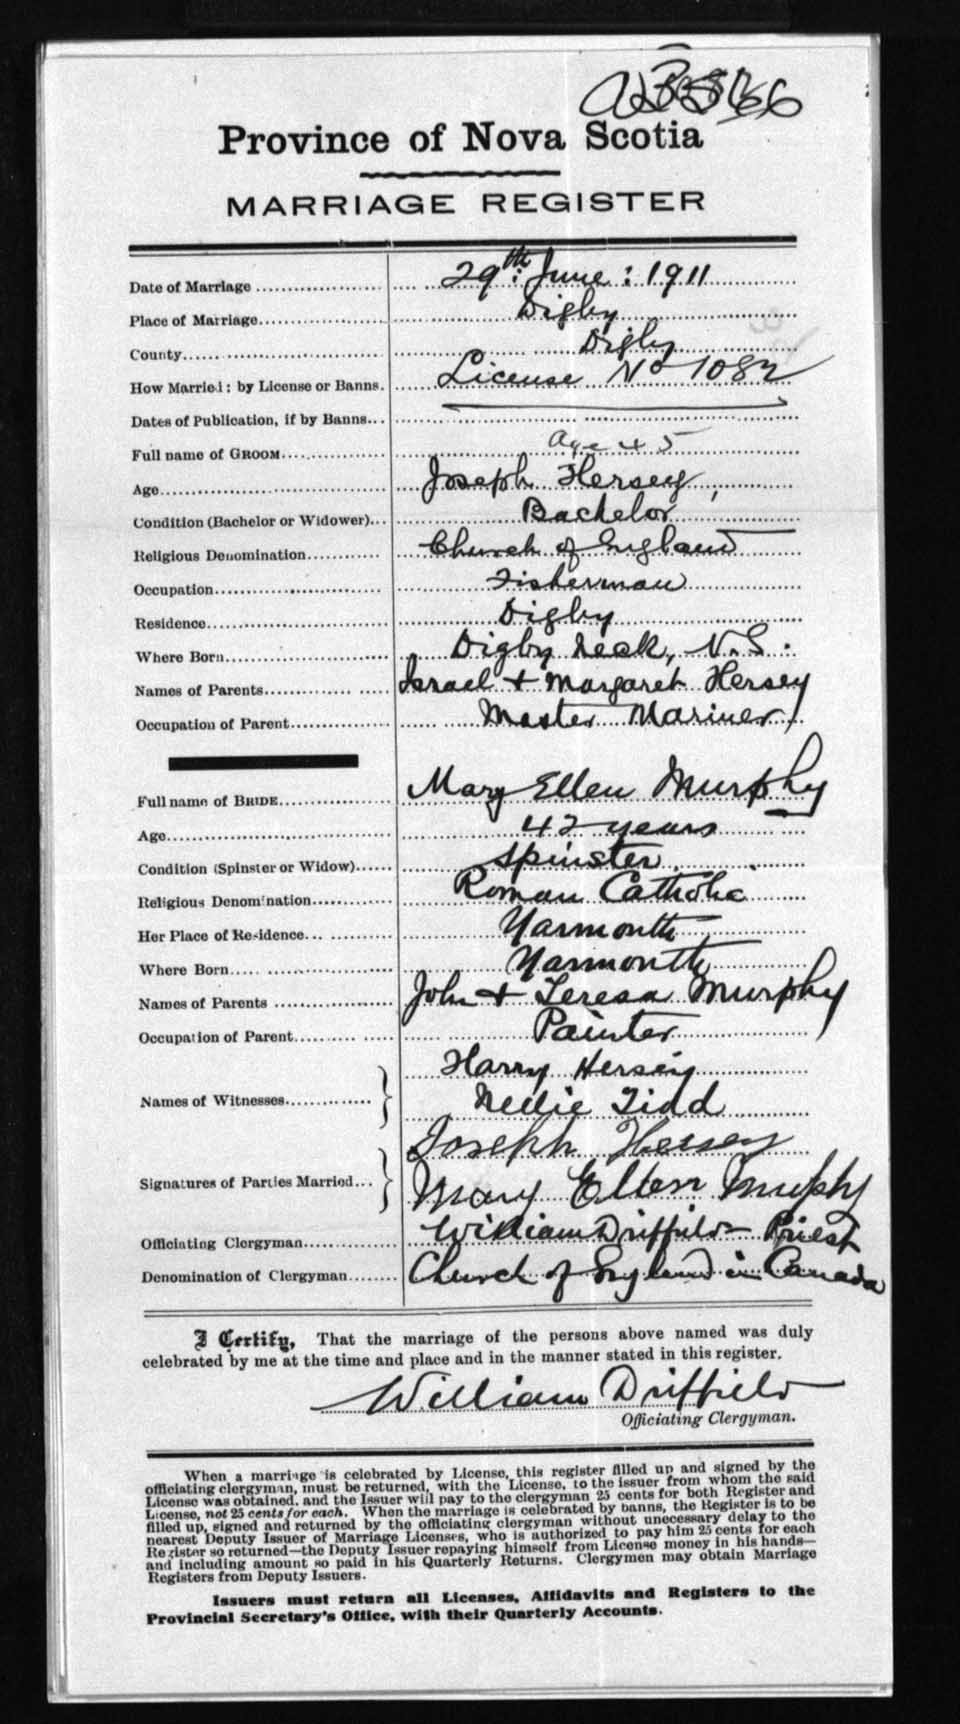 Province of Nova Scotia
MARRIAGE REGISTER
Date of Marriage 29th: June: 1911
Place of Marriage Digby
County Digby
How Married: by License or Banns. License No 1082
Dates of Publication, if by Banns
Full name of GROOM age 45
Age Joseph Hersey,
Condition (Bachelor or Widower) Bachelor
Religious Denomination Church of England
Occupation Fisherman
Residence Digby
Where Born Digby Neck, N.S.
Names of Parents Israel + Margaret Hersey
Occupation of Parent Master Mariner
Full name of BRIDE Mary Ellen Murphy
Age 42 years
Condition (Spinster or Widow) Spinster
Religious Denomination Roman Catholic
Her Place of Residence Yarmouth
Where Born Yarmouth
Names of Parents John + Teresa Murphy
Occupation of Parent Painter
Harry Hersey
Names of Witnesses
Nellie Tidd
Joseph Hersey
Signatures of Parties Married
Mary Ellen Murphy
Officiating Clergyman William Driffield Priest
Denomination of Clergyman Church of England in Canada
I Certify, That the marriage of the persons above named was duly
celebrated by me at the time and place and in the manner stated in this register.
William Driffield
Officiating Clergyman.
When a marriage is celebrated by License, this register filled up and signed by the
officiating clergyman, must be returned, with the License, to the issuer from whom the said
License was obtained, and the Issuer will pay to the clergyman 25 cents for both Register and
License, not 25 cents for each. When the marriage is celebrated by banns, the Register is to be
filled up, signed and returned by the officiating clergyman without unnecessary delay to the
nearest Deputy Issuer of Marriage Licenses, who is authorized to pay him 25 cents for each
Register so returned—the Deputy Issuer repaying himself from License money in his hands—
and including amount so paid in his Quarterly Returns. Clergymen may obtain Marriage
Registers from Deputy Issuers.
Issuers must return all Licenses, Affidavits and Registers to the
Provincial Secretary's Office, with their Quarterly Accounts.